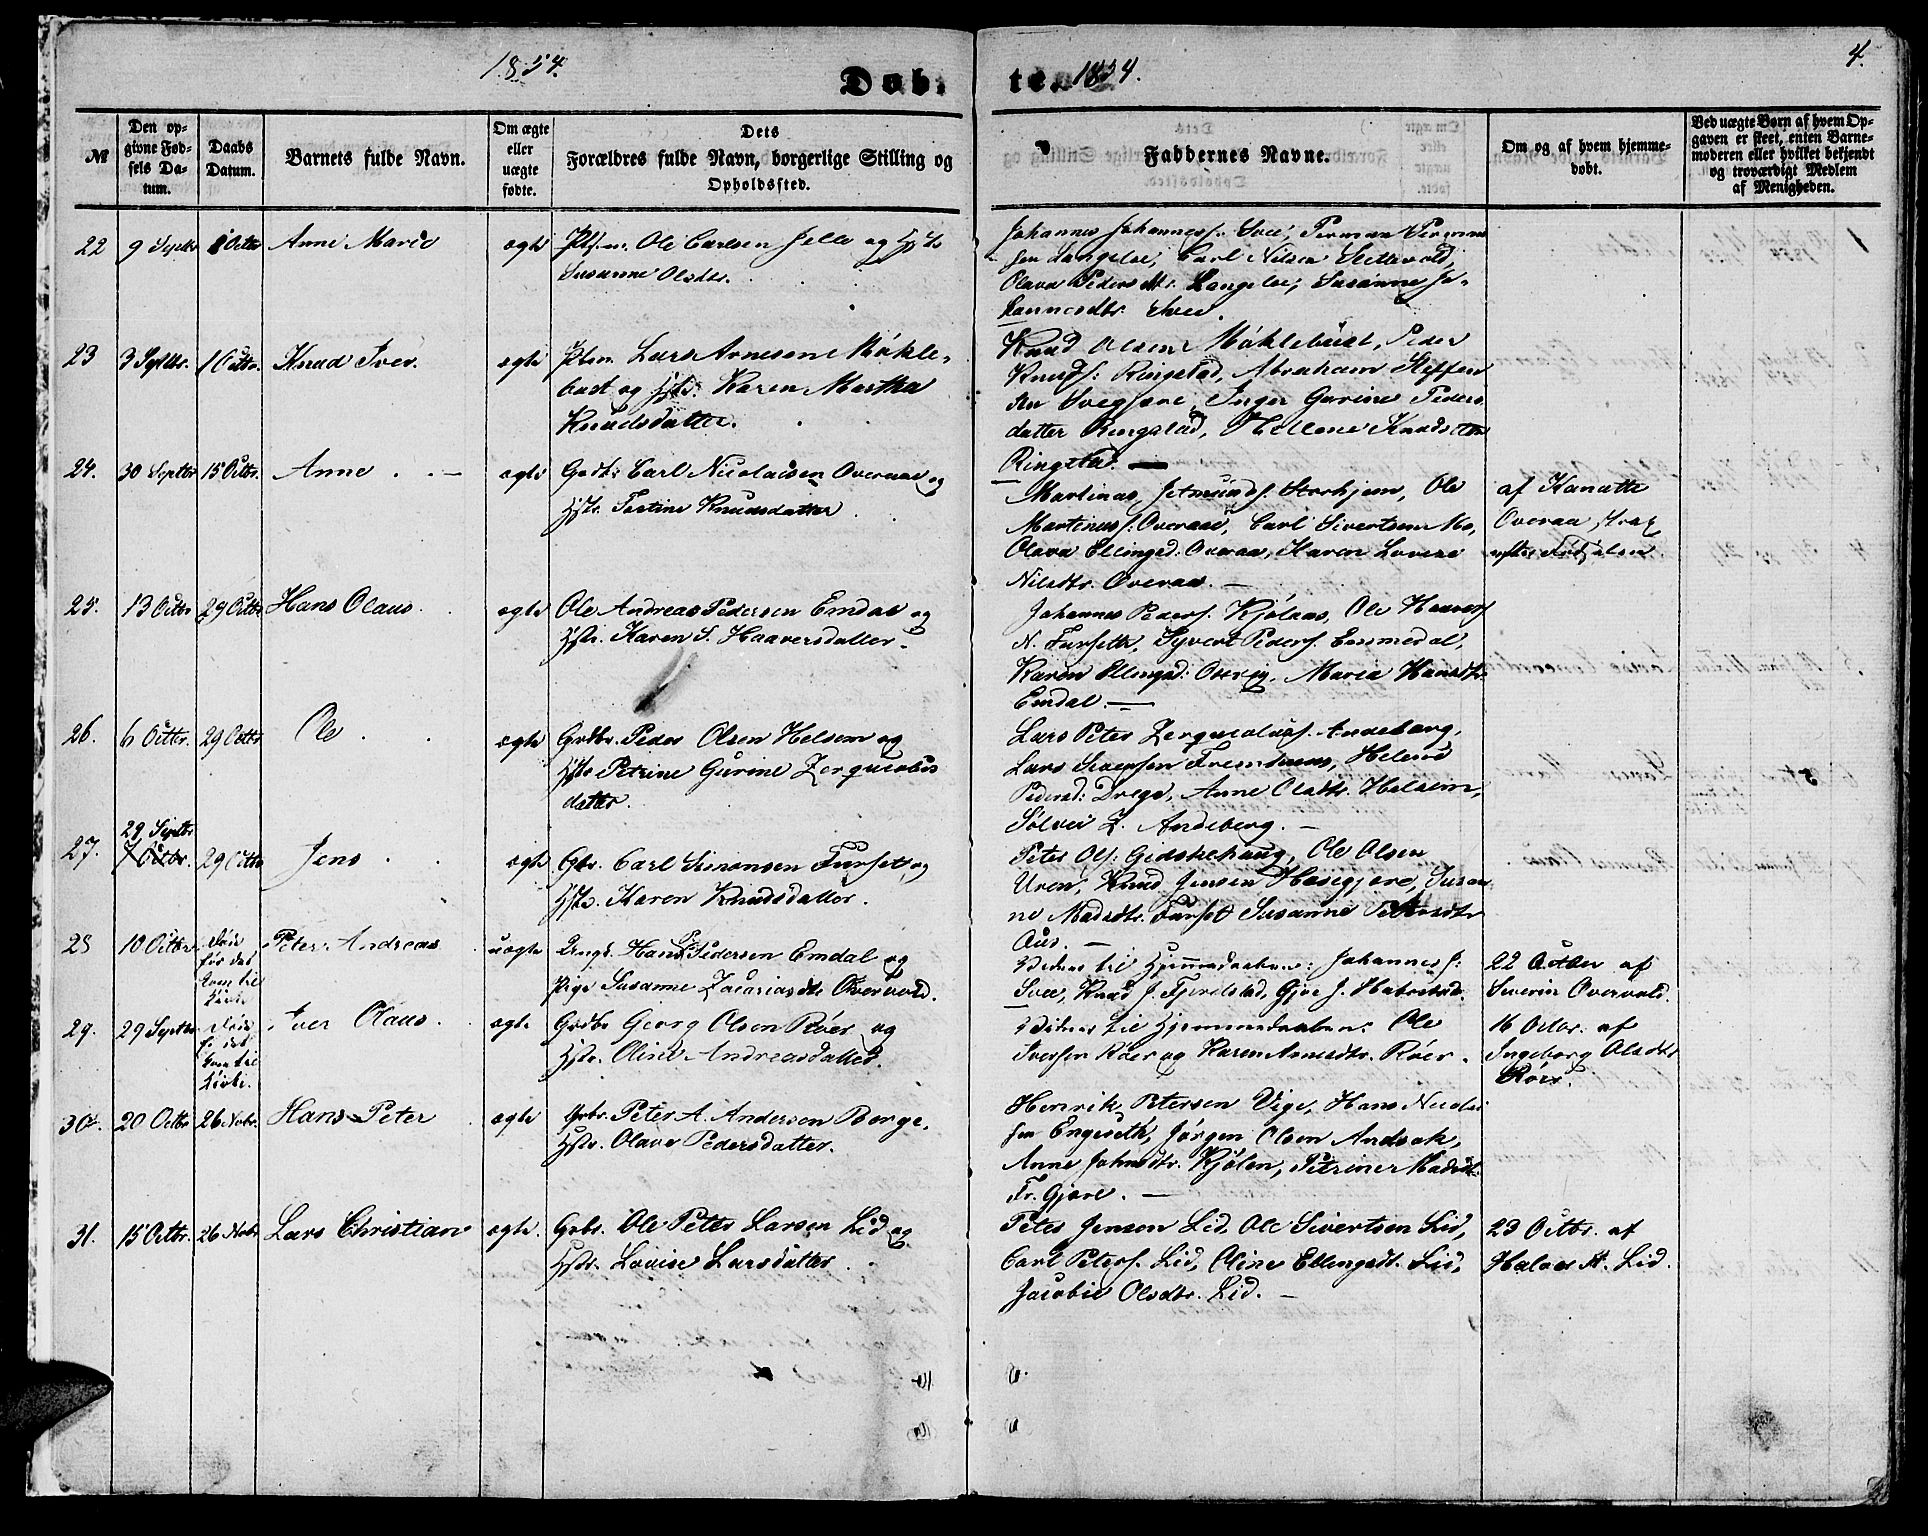 1854.
Døb-
te.
1854.
4.
№
Den op-
givne Fød-
sels Da-
tum.
Daabs
Datum.
Barnets fulde Navn.
Om ægte
eller
uægte
fødte.
Dets
Forældres fulde Navn, borgerlige Stilling og
Opholdssted.
Faddernes Navne.
Om og af hvem hjemme-
døbt.
Ved uægte Børn af hvem Op-
gaven er skeet, enten Barne-
moderen eller hvilket bekjendt
og troværdigt Medlem
af Menigheden.
22 9 Septbr 1 Octbr Anne Marie ægte Ole Carlsen Jelle og Hst
Susanne Olsdtr.
Johannes Johanness. Svee, Perman Perman
sen Langelee, Carl Nilsen Slettevold,
Olava Pedersdtr. Langelee, Susanne Jo-
hannesdtr. Svee.
23 3 Septbr. 1 Octbr. Knud Iver. ægte Plsm. Lars Arnesen Møkle-
bust og Hst. Karen Martha
Knudsdatter.
Knud Olsen Møklebust, Peder
Knuds: Ringstad, Abraham Steffen
sen Svegjære, Inger Gurine Peders
datter Ringstad, Hellene Knudsdtr
Ringstad. —
24. 30 Septbr 15 Octbr. Anne . . — ægte Grdb: Carl Nicolaisen Overaae og
Hstr. Jertine Knudsdatter
Martinus Jetmunds. Storhjem, Ole
Martinus s. Overaae, Carl Sivertsen Mo,
Olava Ellingsd. Overaa, Karen Lovise
Nilsdtr. Overaa. —
af Kanutte
Overaa strax
efter Fødselen.
25. 13 Octbr 29 Octbr Hans Olaus. ægte Ole Andreas Pedersen Emdal og
Hstr. Karen S. Haaversdatter.
Johannes Peders. Kjølaas, Ole Haavers
N. Furseth, Syvert Peders. Emmedal,
Karen Ellingsd: Overvig, Maria Hansdtr
Emdal. —
26. 6 Octbr. 29 Octbr Ole . . ægte Grdbr. Peder Olsen Helsem og
Hstr Petrine Gurine Zerquiolus
datter.
Lars Peter Zerquiolus s. Andeberg,
Lars Iversen Fremstuen, Helene
Pedersd: Drege, Anne Olsdtr. Helsem,
Sølvei Z. Andeberg. —
27. 29 Septbr
7 Octbr. 29 Octbr Jens . . ægte Gbr. Carl Simonsen Furset og
Hstr. Karen Knudsdatter.
Peter Ols: Gidskehaug, Ole Olsen
Uren, Knud Jensen Hesegjære, Susan
ne Madsdtr. Furset Susanne Petersdtr
Aus. —
28 10 Octbr Døde
før det
kom til
Kirke Peter Andreas uægte Ungk. Hans P. Pedersen Emdal og
Pige Susanne Zacariasdtr Overvold.
Vidner til Hjemmedaaben: Johannes J:
Svee, Knud J. Fjeldstad, Gjøe J. Habostad.
22 Octbr af
Severin Overvold.
29. 29 Septbr Døde
f. det
kom til
Kirke. Iver Olaus. ægte Grdbr Georg Olsen Røer og
Hstr. Oline Andreasdatter.
Vidner til Hjemmedaaben: Ole
Iversen Røer og Karen Arnesdtr. Røer.
16 Octbr. af
Ingeborg Olsdtr
Røer.
30. 20 Octbr 26 Nobr. Hans Peter ægte Grbr. Peter A. Andersen Berge,
Hstr. Olave Pedersdatter.
Henrik Petersen Vige, Hans Nicolai
sen Engeseth, Jørgen Olsen Andsok,
Anne Johnsdtr. Kjølen, Petriner Madsdt.
Fr. Gjøre. —
31. 15 Octbr. 26 Nobr Lars Christian ægte. Grbr. Ole Peter Larsen Lid og
Hstr. Lovise Larsdatter.
Peter Jensen Lid, Ole Sivertsen Lid,
Carl Peters. Lid, Oline Ellingsdt. Lid,
Jacobie Olsdtr. Lid. —
23 Octbr. af
Halvor A. Lid.